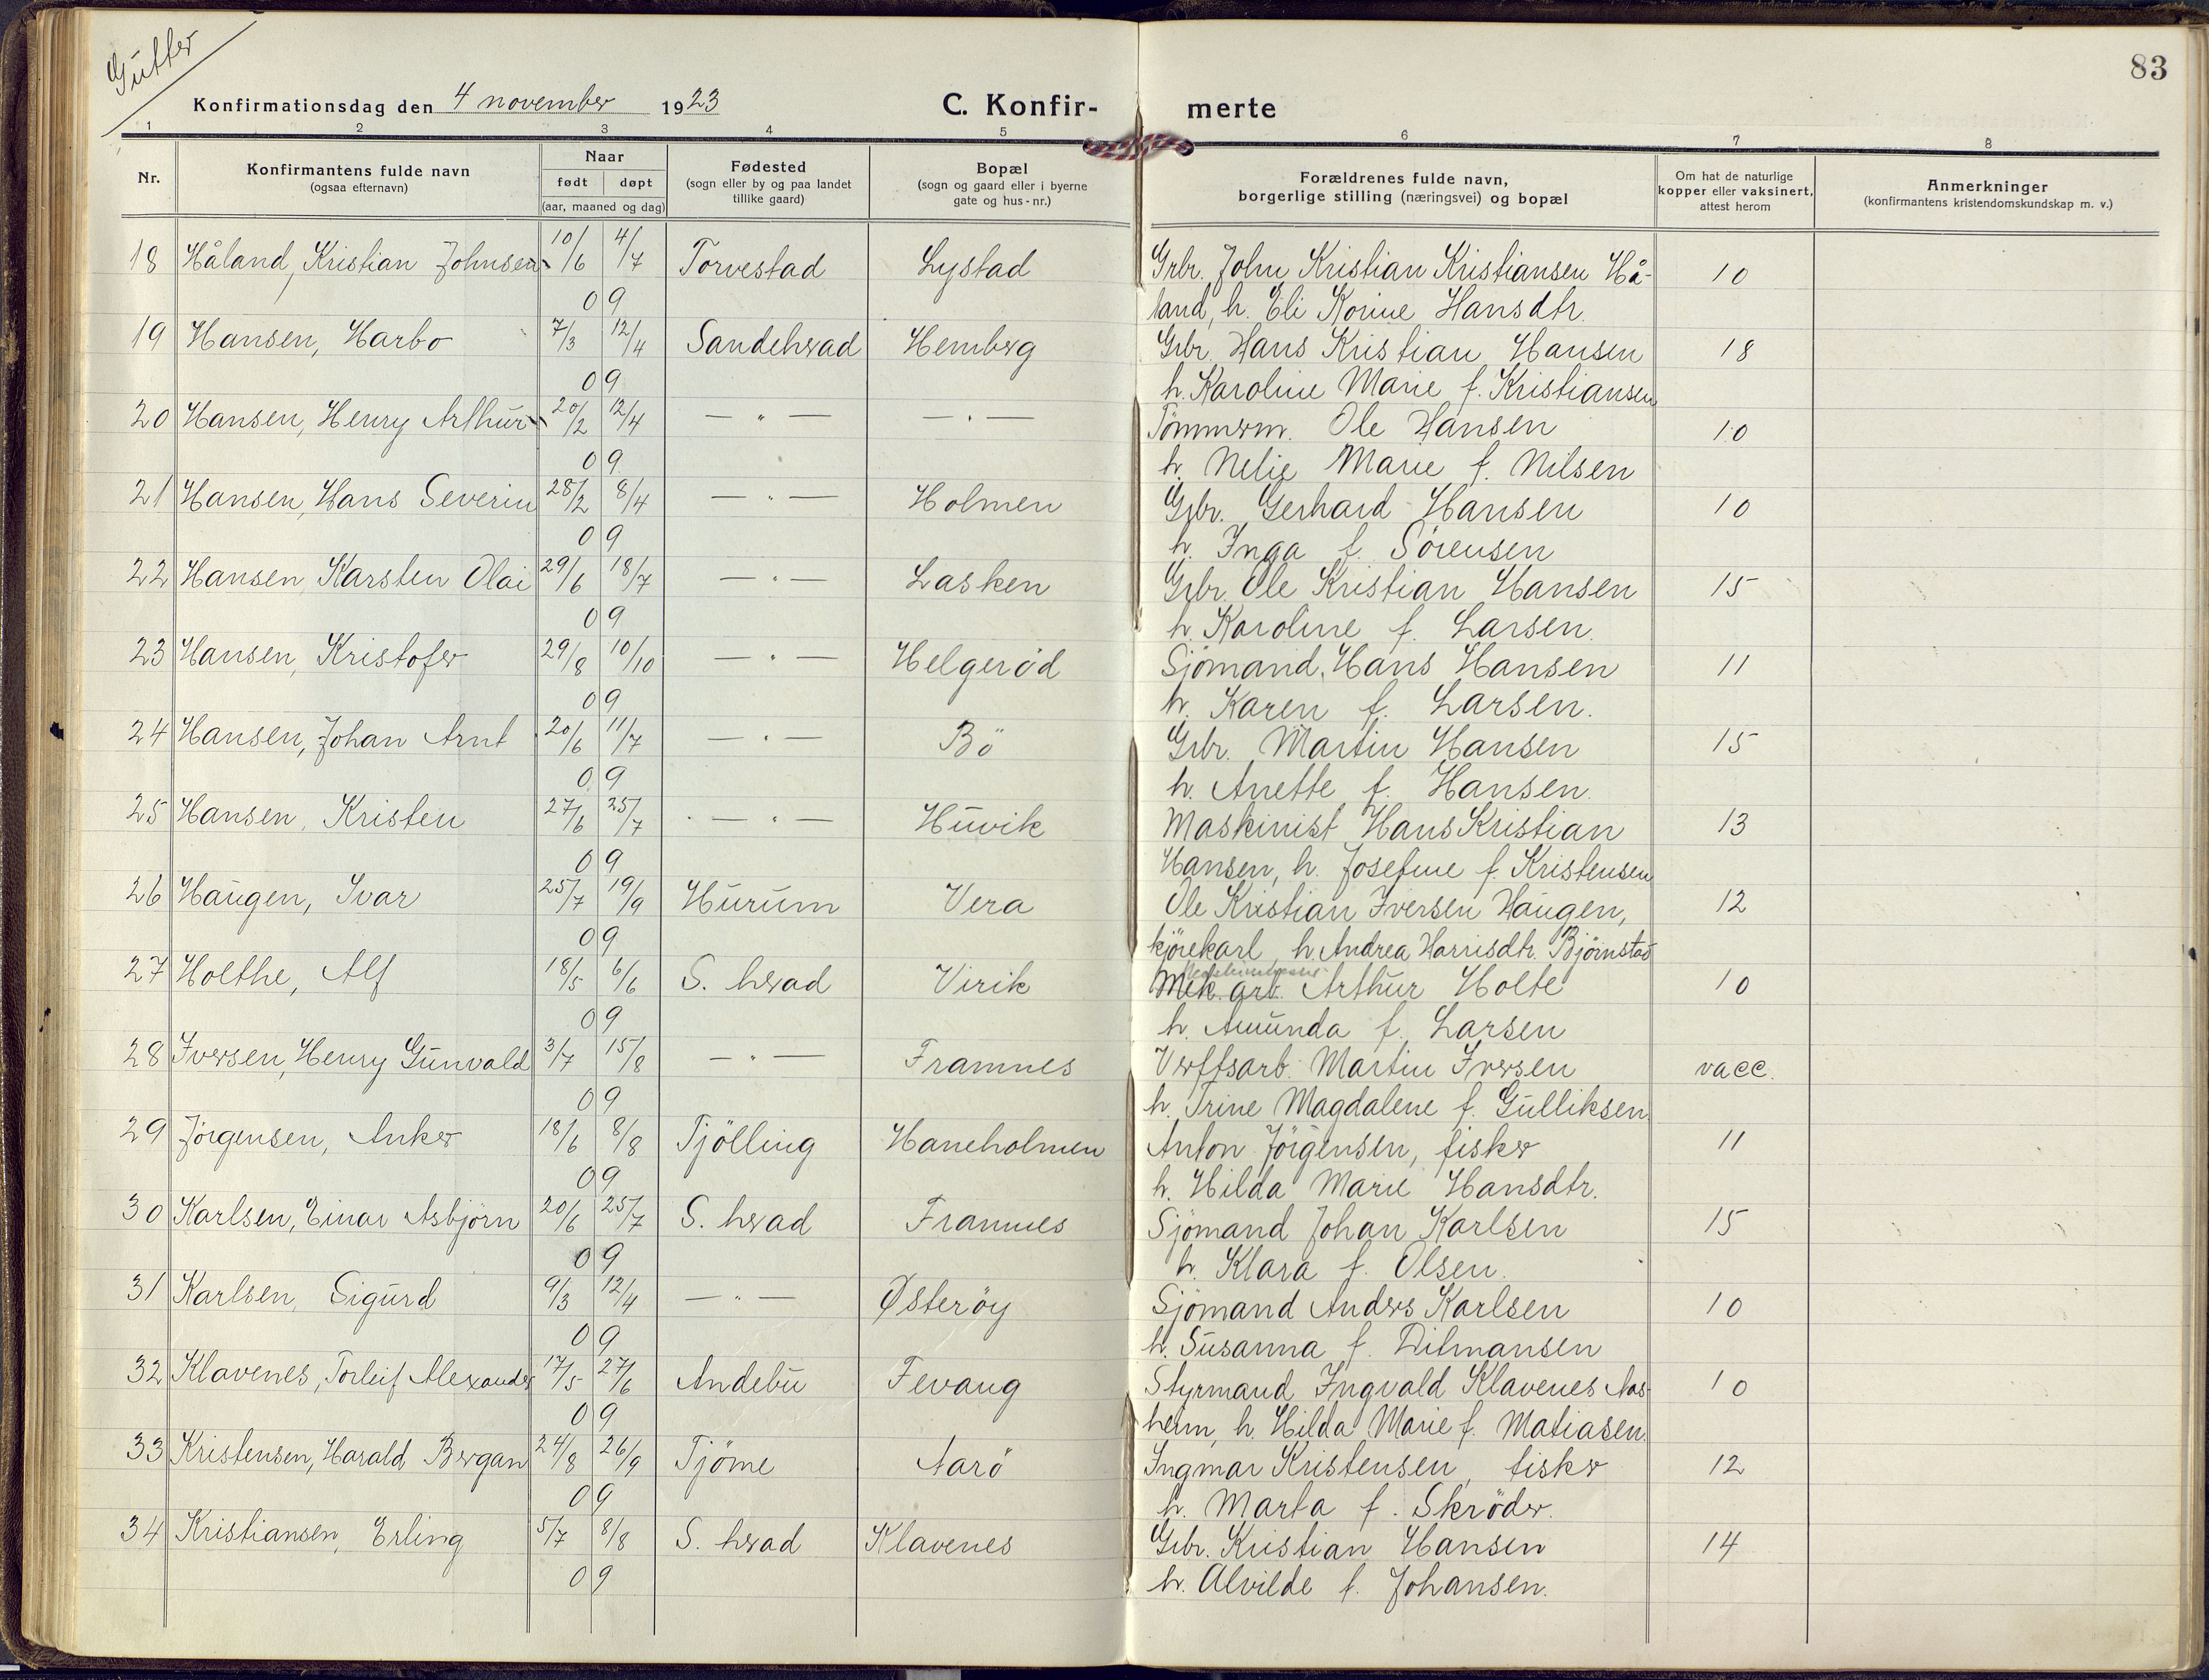 Gutter
83
Konfirmationsdag den 4 november 1923
C. Konfir- merte
1 2 3 4 5 6 7 8
Nr.
Konfirmantens fulde navn
(ogsaa efternavn)
Naar
født døpt
(aar, maaned og dag)
Fødested
(sogn eller by og paa landet
tillike gaard)
Bopæl
(sogn og gaard eller i byerne
gate og hus-nr.)
Forældrenes fulde navn,
borgerlige stilling (næringsvei) og bopæl
Om hat de naturlige
kopper eller vaksinert,
attest herom
Anmerkninger
(konfirmantens kristendomskundskap m. v.)
18 Håland, Kristian Johnsen 10/6 4/7 Torvestad Lystad Grbr. John Kristian Kristiansen Hå- 10
09 land, h. Eli Korine Hansdtr.
19 Hansen, Harbo 7/3 12/4 Sandeherad Hemberg Grbr. Hans Kristian Hansen 18
09 h. Karoline Marie f. Kristiansen
20 Hansen, Henry Arthur 20/2 12/4 — " — — " — Tömmerm. Ole Hansen 10
09 h. Nelie Marie f. Nilsen
21 Hansen, Hans Severin 28/2 8/4 — " — Holmen Grbr. Gerhard Hansen 10
09 h. Inga f. Sörensen
22 Hansen, Karsten Olai 29/6 18/7 — " — Lasken Grbr. Ole Kristian Hansen 15
09 h. Karoline f. Larsen.
23 Hansen, Kristofer 29/8 10/10 — " — Helgeröd Sjömand, Hans Hansen 11
09 h. Karen f. Larsen.
24 Hansen, Johan Arnt 20/6 11/7 — " — Bö Grbr. Martin Hansen 15
09 h. Anette f. Hansen.
25 Hansen, Kristen 27/6 25/7 — " — Huvik Maskinist Hans Kristian 13
09 Hansen, h. Josefine f. Kristensen
26 Haugen, Ivar 25/7 19/9 Hurum Vera Ole Kristian Iversen Haugen, 12
09 kjörekarl, h. Andrea Harrisdtr. Björnstad
27 Holthe, Alf 18/5 6/6 S. herad Virik Mek. arb. Arthur Holte 10
09 h. Amunda f. Larsen
28 Iversen, Henry Gunvald 3/7 15/8 — " — Framnes Verftsarb. Martin Iversen vacc.
09 h. Trine Magdalene f. Gulliksen.
29 Jörgensen, Anker 18/6 8/8 Tjölling Haneholmen Anton Jörgensen, fisker 11
09 h. Hilda Marie Hansdtr.
30 Karlsen, Einar Asbjörn 20/6 25/7 S. herad Framnes Sjömand Johan Karlsen 15
09 h. Klara f. Olsen.
31 Karlsen, Sigurd 9/3 12/4 — " — Østeröy Sjömand Anders Karlsen 10
09 h. Susanna f. Ditmansen
32 Klavenes, Torleif Alexander 17/5 27/6 Andebu Fevang Styrmand Ingvald Klavenes Aas- 10
09 heim, h. Hilda Marie f. Matiasen.
33 Kristensen, Harald Bergan 24/8 26/9 Tjöme Aarö Ingmar Kristensen, fisker 12
09 h. Marta f. Skröder.
34 Kristiansen, Erling 5/7 8/8 S. herad Klavenes Grbr. Kristian Hansen 14
09 h. Alvilde f. Johansen.